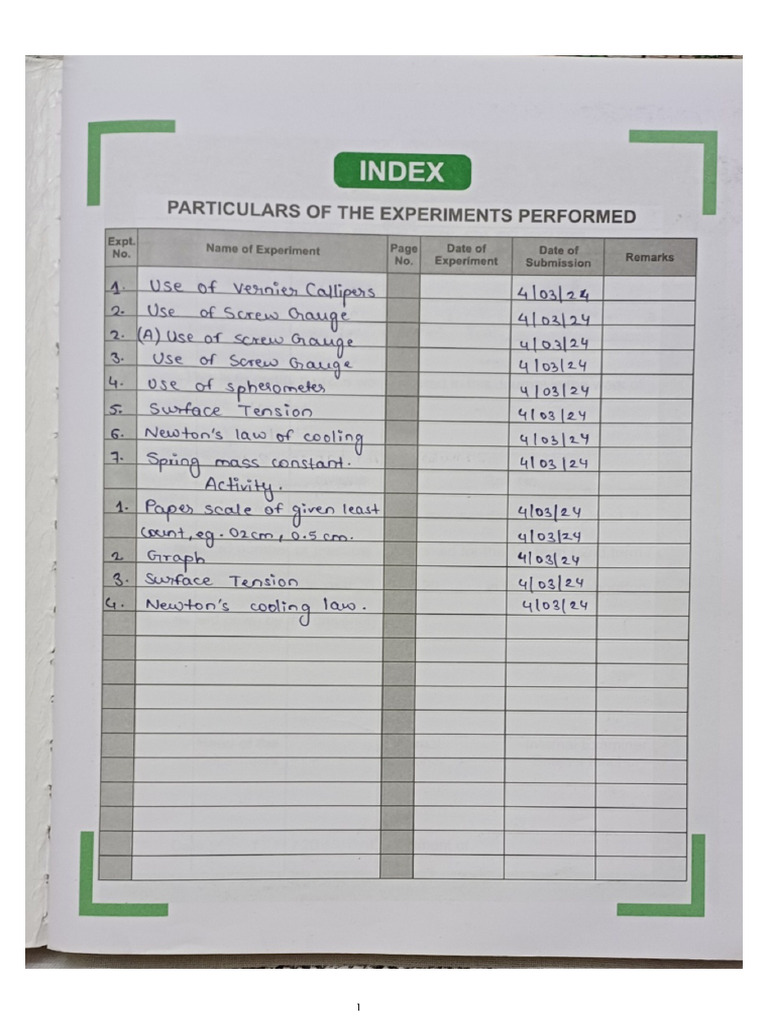 INDEX
PARTICULARS OF THE EXPERIMENTS PERFORMED
Expt. No. Name of Experiment Page No. Date of Experiment Date of Submission Remarks
1. Use of Vernier Callipers 4/03/24
2. Use of Screw Gauge 4/03/24
2. (A) Use of screw Gauge 4/03/24
3. Use of Screw Gauge 4/03/24
4. Use of spherometer 4/03/24
5. Surface Tension 4/03/24
6. Newton's law of cooling 4/03/24
7. Spring mass constant. 4/03/24
Activity.
1. Paper scale of given least 4/03/24
count, eg. 02cm, 0.5 cm. 4/03/24
2 Graph 4/03/24
3. Surface Tension 4/03/24
4. Newton's cooling law. 4/03/24
1